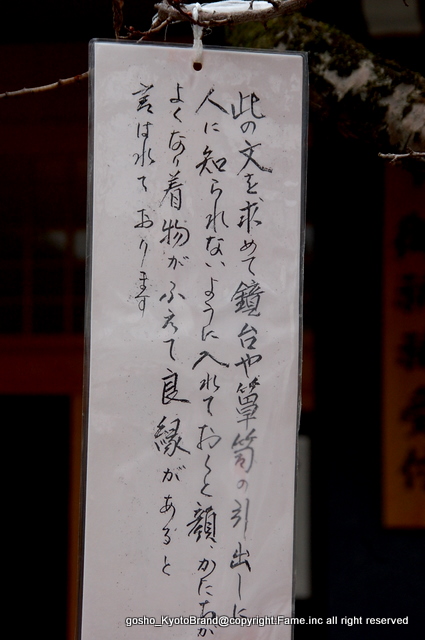 此の文を求めて鏡台や簞笥の引出しに
人に知られないように入れておくと顔かたちが
よくなり着物がふえて良縁があると
言はれております
gosho_KyotoBrand@copyright.Fame.inc all right reserved